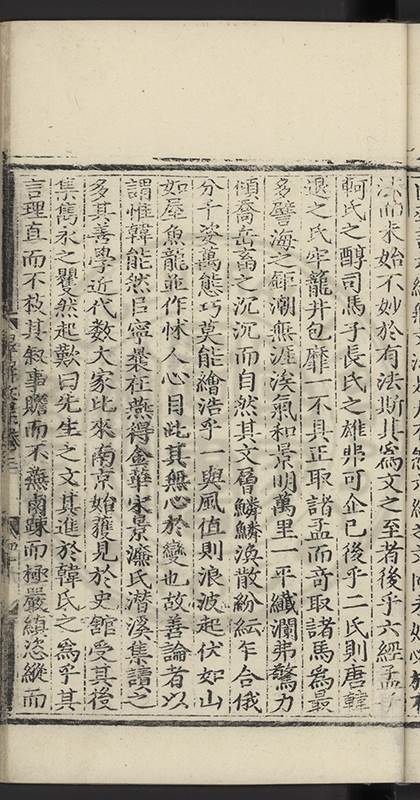 法而未始不妙於有法斯其為文之至者後乎六經孟子
軻氏之醇司馬子長氏之雄弗可企已後乎二氏則唐韓
退之氏牢籠并包靡一不具正取諸孟而奇取諸馬為最
多譬海之鉅潮無涯涘氣和景明萬里一平纖瀾弗驚力
傾喬岳畜之沉沉而自然其文層鱗鱗渙散紛紜乍合俄
分千姿萬態巧莫能繪浩乎一與風值則浪波起伏如山
如屋魚龍並作怵人心目此其無心於變也故善論者以
謂惟韓能然臣寧曩在燕得金華宋景濂氏潛溪集讀之
多其善學近代数大家比來南京始獲見於史舘受其後
集雋永之瞿然起歎曰先生之文其進於韓氏之為乎其
言理直而不枝其叙事贍而不蕪南踈而極嚴縝恣縱而